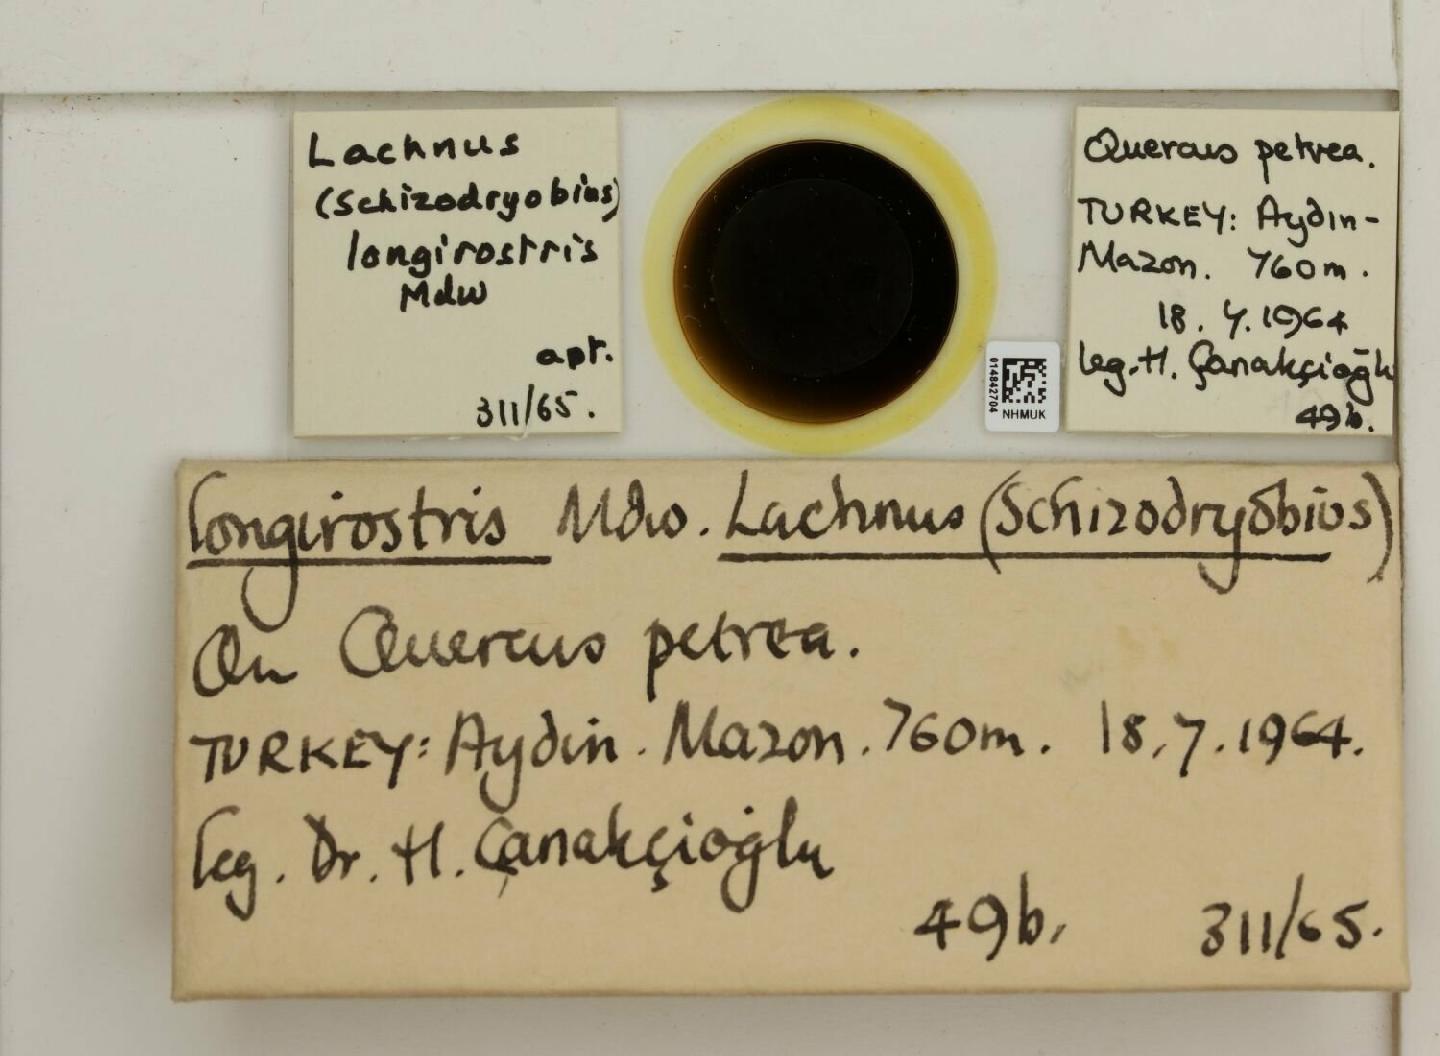 Lachnus
(Schizodryobius)
longirostris
Mdw
apt.
311/65.
014842704
NHMUK
Quercus petrea.
TURKEY: Aydın-
Mazon. 760m.
18.7.1964
leg. H. Çanakçioğlu
49b.
longirostris Mdw. Lachnus (Schizodryobius)
On Quercus petrea.
TURKEY: Aydin. Mazon. 760m. 18.7.1964.
leg. Dr. H. Çanakçioğlu
49b. 311/65.